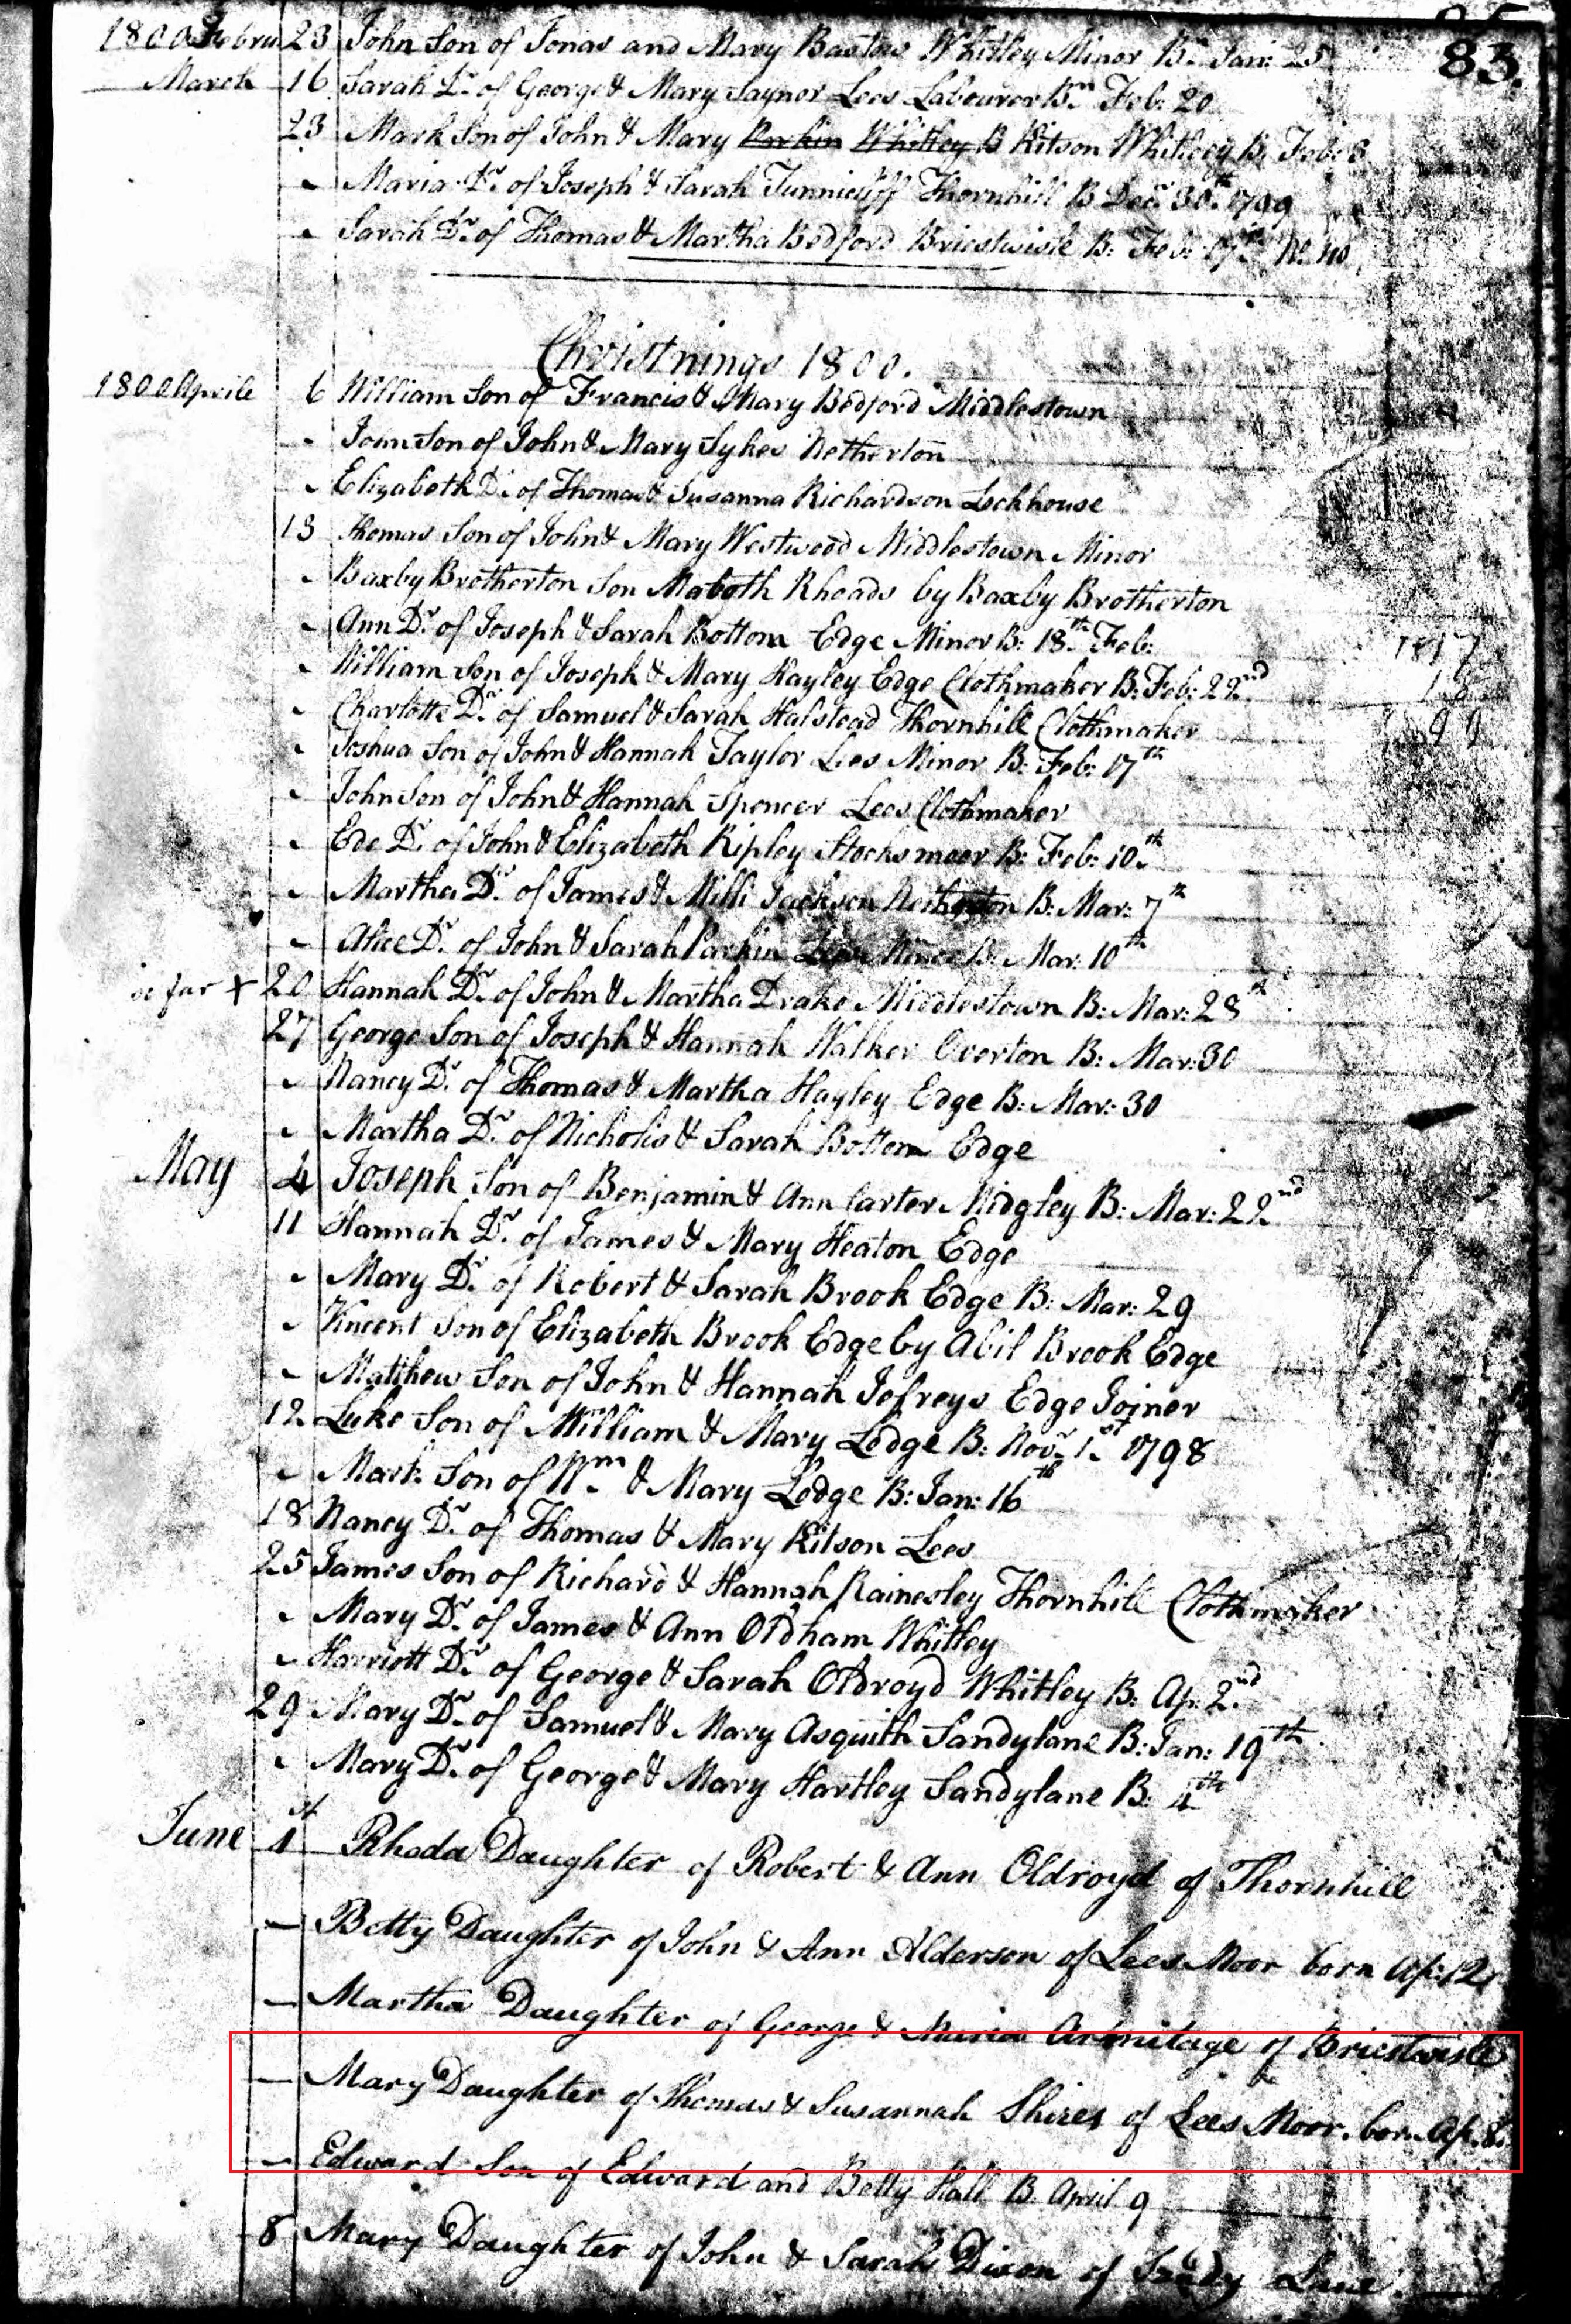 83.
1800 Febru 23 John Son of Jonas and Mary Bastow Whitley Minor Bn. Jan: 25
March 16 Sarah Dr. of George & Mary Saynor Lees Labourer Bn Feb: 20
23 Mark Son of John & Mary Parkin Whitley B Kitson Whitley B. Feb: 8
- Maria Dr. of Joseph & Sarah Tunnicliff Thornhill B Decr 30th 1799
- Sarah Dr. of Thomas & Martha Bedford Briestwisle B: Feb: 17th No. 110
Christnings 1800.
1800 Aprile 6 William Son of Francis & Mary Bedford Middlestown
- John Son of John & Mary Sykes Netherton
- Elizabeth Dr. of Thomas & Susanna Richardson Lockhouse
13 Thomas Son of John & Mary Westwood Middlestown Minor
- Baxby Brotherton Son Maboth Rhoads by Baxby Brotherton
- Ann Dr. of Joseph & Sarah Bottom Edge Minor B: 18th Feb:
- William Son of Joseph & Mary Hayley Edge Clothmaker B: Feb: 22nd
- Charlotte Dr. of Samuel & Sarah Halstead Thornhill Clothmaker
- Joshua Son of John & Hannah Taylor Lees Minor B: Feb: 17th
- John Son of John & Hannah Spencer Lees Clothmaker
- Ede Dr. of John & Elizabeth Ripley Stocksmoor B: Feb: 10th
- Martha Dr. of James & Milli Jackson Netherton B: Mar: 7th
- Alice Dr. of John & Sarah Parkin Lees Minor B: Mar: 10th
so far + 20 Hannah Dr. of John & Martha Drake Middlestown B: Mar: 28th
27 George Son of Joseph & Hannah Walker Overton B: Mar: 30
- Nancy Dr. of Thomas & Martha Hayley Edge B: Mar: 30
- Martha Dr. of Nicholis & Sarah Bottom Edge
May 4 Joseph Son of Benjamin & Ann Carter Midgley B: Mar: 22nd
11 Hannah Dr. of James & Mary Heaton Edge
- Mary Dr. of Robert & Sarah Brook Edge B: Mar: 29
- Vincent Son of Elizabeth Brook Edge by Abil Brook Edge
- Matthew Son of John & Hannah Jefreys Edge Joiner
12 Luke Son of William & Mary Lodge B: Novr 1st 1798
- Mark Son of Wm & Mary Lodge B: Jan: 16th
18 Nancy Dr. of Thomas & Mary Kitson Lees
25 James Son of Richard & Hannah Rainesley Thornhill Clothmaker
- Mary Dr. of James & Ann Oldham Whitley
- Harriott Dr. of George & Sarah Oldroyd Whitley B: Ap: 2nd
29 Mary Dr. of Samuel & Mary Asquith Sandylane B: Jan: 19th
- Mary Dr. of George & Mary Hartley Sandylane B: 4th
June 1st Rhoda Daughter of Robert & Ann Oldroyd of Thornhill
- Betty Daughter of John & Ann Alderson of Lees Moor born Ap: 12
- Martha Daughter of George & Maria Armitage of Briestwisle
- Mary Daughter of Thomas & Susannah Shires of Lees Moor. bor. Ap. 8.
- Edward Son of Edward and Betty Hall B April 9
8 Mary Daughter of John & Sarah Dixon of Sandy Lane.